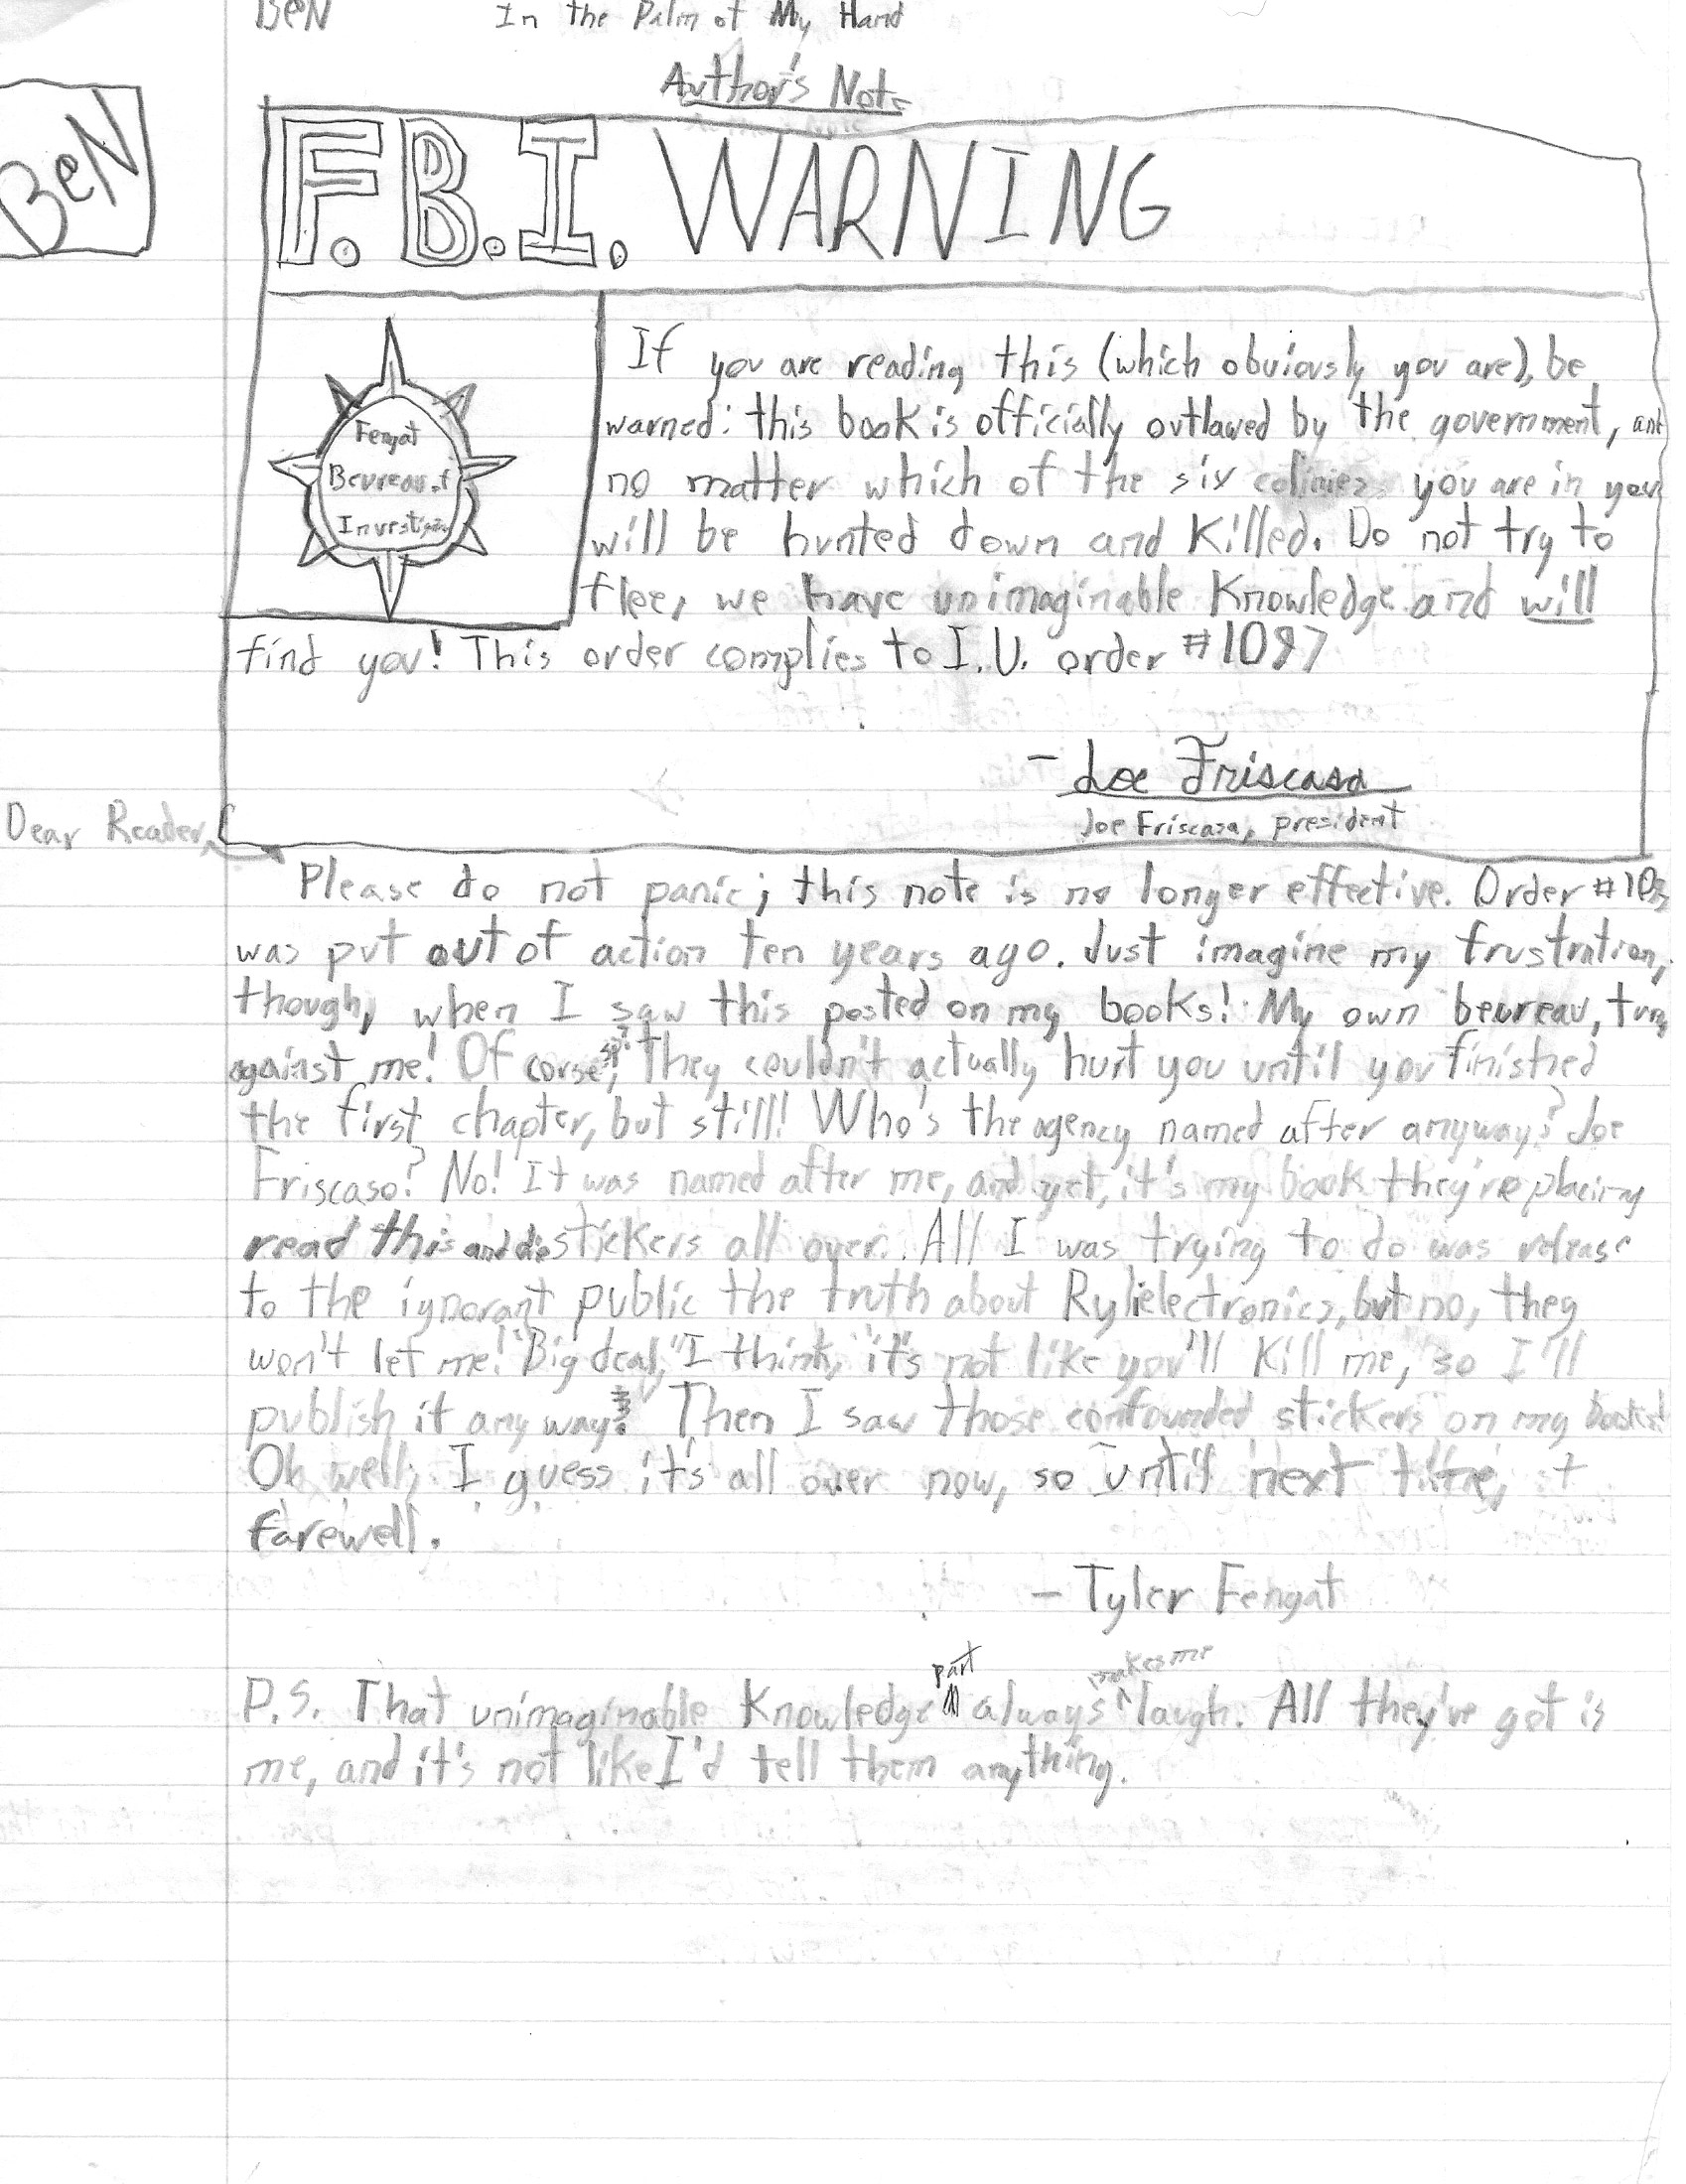 BeN In the Palm of My Hand
Author's Note
BeN
F.B.I. WARNING
Fengat
Beureau of
If you are reading this (which obviously you are), be
warned: this book is officially outlawed by the government, and
no matter which of the six colinies you are in you
will be hunted down and killed. Do not try to
flee, we have unimaginable knowledge and will
find you! This order complies to I.U. order #1097
- Joe Friscasa
Joe Friscasa, president
Dear Reader,
Please do not panic; this note is no longer effective. Order
was put out of action ten years ago. Just imagine my frustration,
though, when I saw this posted on my books! My own beureau,
against me! Of corse, they couldn't actually hurt you until you finished
the first chapter, but still! Who's the agency named after anyway? Joe
Friscaso? No! It was named after me, and yet, it's my book they're placing
read this and die stickers all over. All I was trying to do was release
to the ignorant public the truth about Rylielectronics, but no, they
won't let me! "Big deal," I think, "it's not like you'll kill me, so I'll
publish it any way." Then I saw those confounded stickers on my
Oh well, I guess it's all over now, so until next time,
farewell.
- Tyler Fengat
P.S. That unimaginable knowledge part always makes me laugh. All they've got is
me, and it's not like I'd tell them anything.